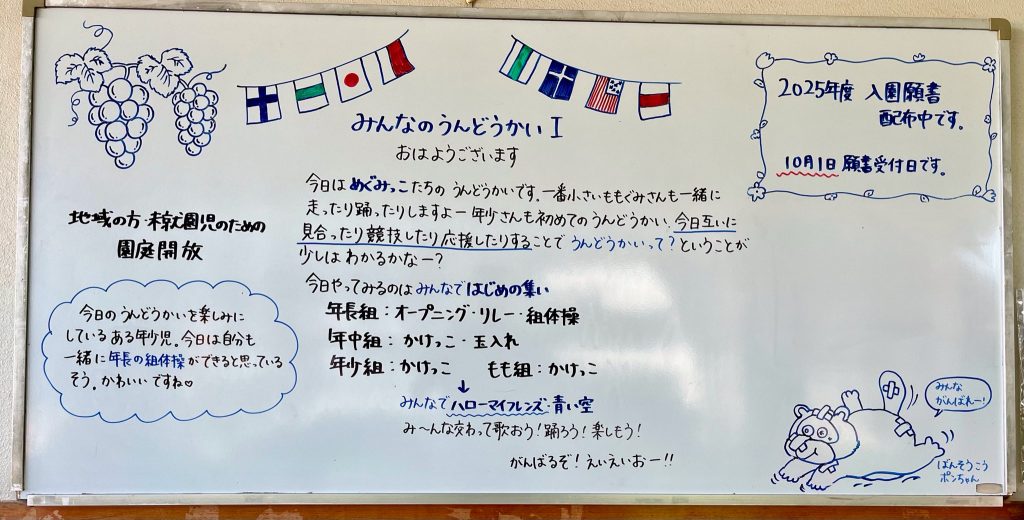 みんなのうんどうかいⅠ
おはようございます
今日は めぐみっこたちの うんどうかいです。一番小さいももぐみさんも一緒に
走ったり踊ったりしますよー年少さんも初めてのうんどうかい。今日互いに
見合ったり競技したり応援したりすることで うんどうかいって？ということが
少しは わかるかなー？
今日やってみるのは みんなで はじめの集い
年長組：オープニング・リレー・組体操
年中組： かけっこ・玉入れ
年少組：かけっこ もも組：かけっこ
↓
みんなで ハローマイフレンズ・青い空
み～んな交わって歌おう！踊ろう！楽しもう！
がんばるぞ！えいえいおー!!
地域の方・未就園児のための
園庭開放
今日のうんどうかいを楽しみに
している ある年少児。今日は自分も
一緒に年長の組体操ができると思っている
そう。かわいいですね♡
2025年度 入園願書
配布中です。
10月1日 願書受付日です。
みんな
がんばれー！
ばんそうこう
ポンちゃん